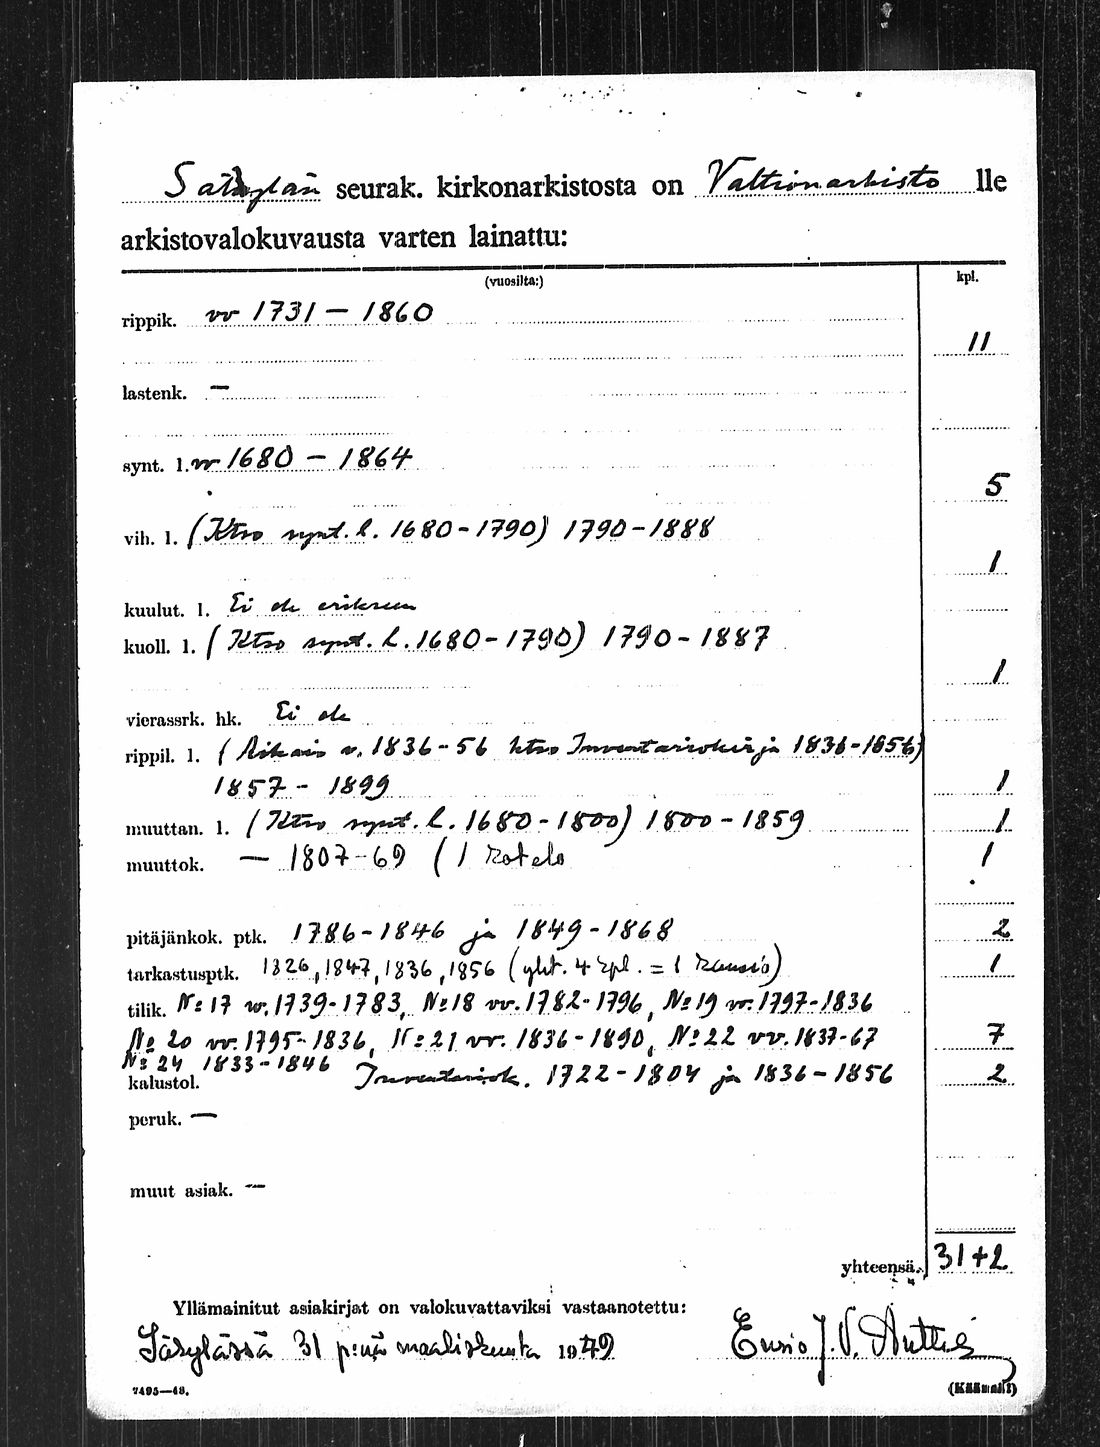 Säkylän seurak. kirkonarkistosta on Valtionarkisto lle
arkistovalokuvausta varten lainattu:
(vuosilta:) kpl.
rippik. vv 1731 — 1860
11
lastenk. —
synt. l. vv 1680 — 1864
5
vih. l. (Ktso synt. l. 1680-1790) 1790-1888
1
kuulut. l. Ei ole erikseen
kuoll. l. (Ktso synt. l. 1680-1790) 1790-1887
1
vierassrk. hk. Ei ole
rippil. l. (Aikais v. 1836-56 ktso Inventariokirja 1836-1856)
1857 - 1899 1
muuttan. l. (Ktso synt. l. 1680-1800) 1800-1859 1
muuttok. — 1807-69 (1 kotelo 1
pitäjänkok. ptk. 1786-1846 ja 1849-1868 2
tarkastusptk. 1826, 1847, 1836, 1856 (yht. 4 kpl. = 1 kansio) 1
tilik. No 17 vv. 1739-1783, No 18 vv. 1782-1796, No 19 vv. 1797-1836
No 20 vv. 1795-1836, No 21 vv. 1836-1890, No 22 vv. 1837-67 7
No 24 1833-1846
kalustol. Inventariok. 1722-1804 ja 1836-1856 2
peruk. —
muut asiak. —
yhteensä. 31+2
Yllämainitut asiakirjat on valokuvattaviksi vastaanotettu:
Säkylässä 31 p:nä maaliskuuta 1949 Ensio J. V. Anttila
7495—48.